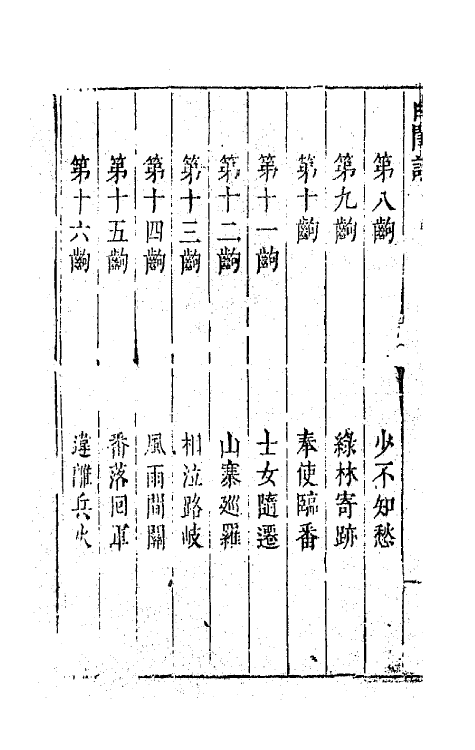 第八齣　少不知愁
第九齣　綠林寄跡
第十齣　奉使臨番
第十一齣　士女隨遷
第十二齣　山寨廵羅
第十三齣　相泣路岐
第十四齣　風雨間關
第十五齣　番落回軍
第十六齣　違離兵火